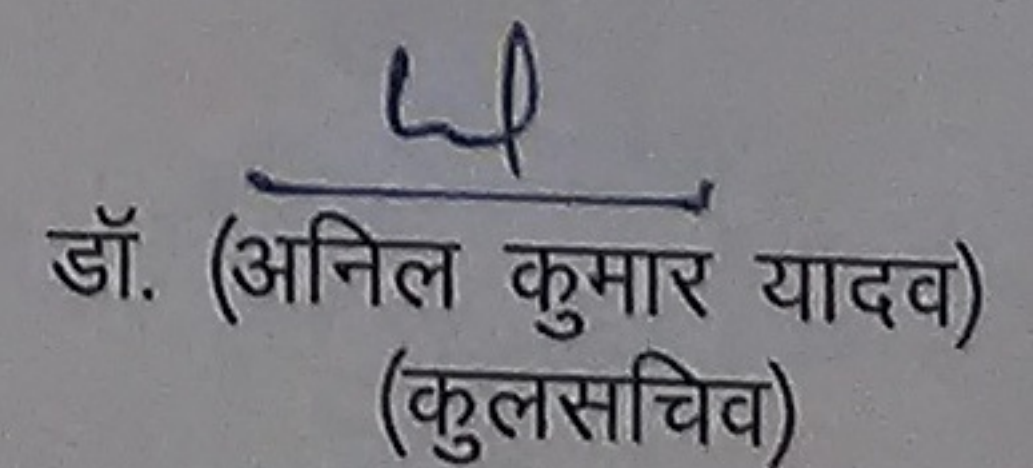 डॉ. (अनिल कुमार यादव)
(कुलसचिव)